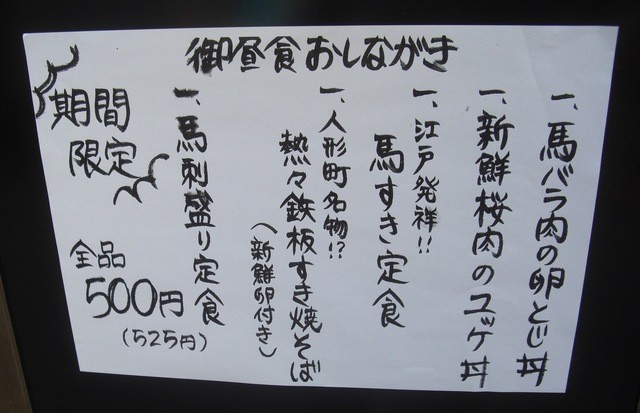 御昼食おしながき
一、馬バラ肉の卵とじ丼
一、新鮮桜肉のユッケ丼
一、江戸発祥!!
馬すき定食
一、人形町名物!?
熱々鉄板すき焼そば
(新鮮卵付き)
一、馬刺盛り定食
期間
限定
全品
500円
(525円)